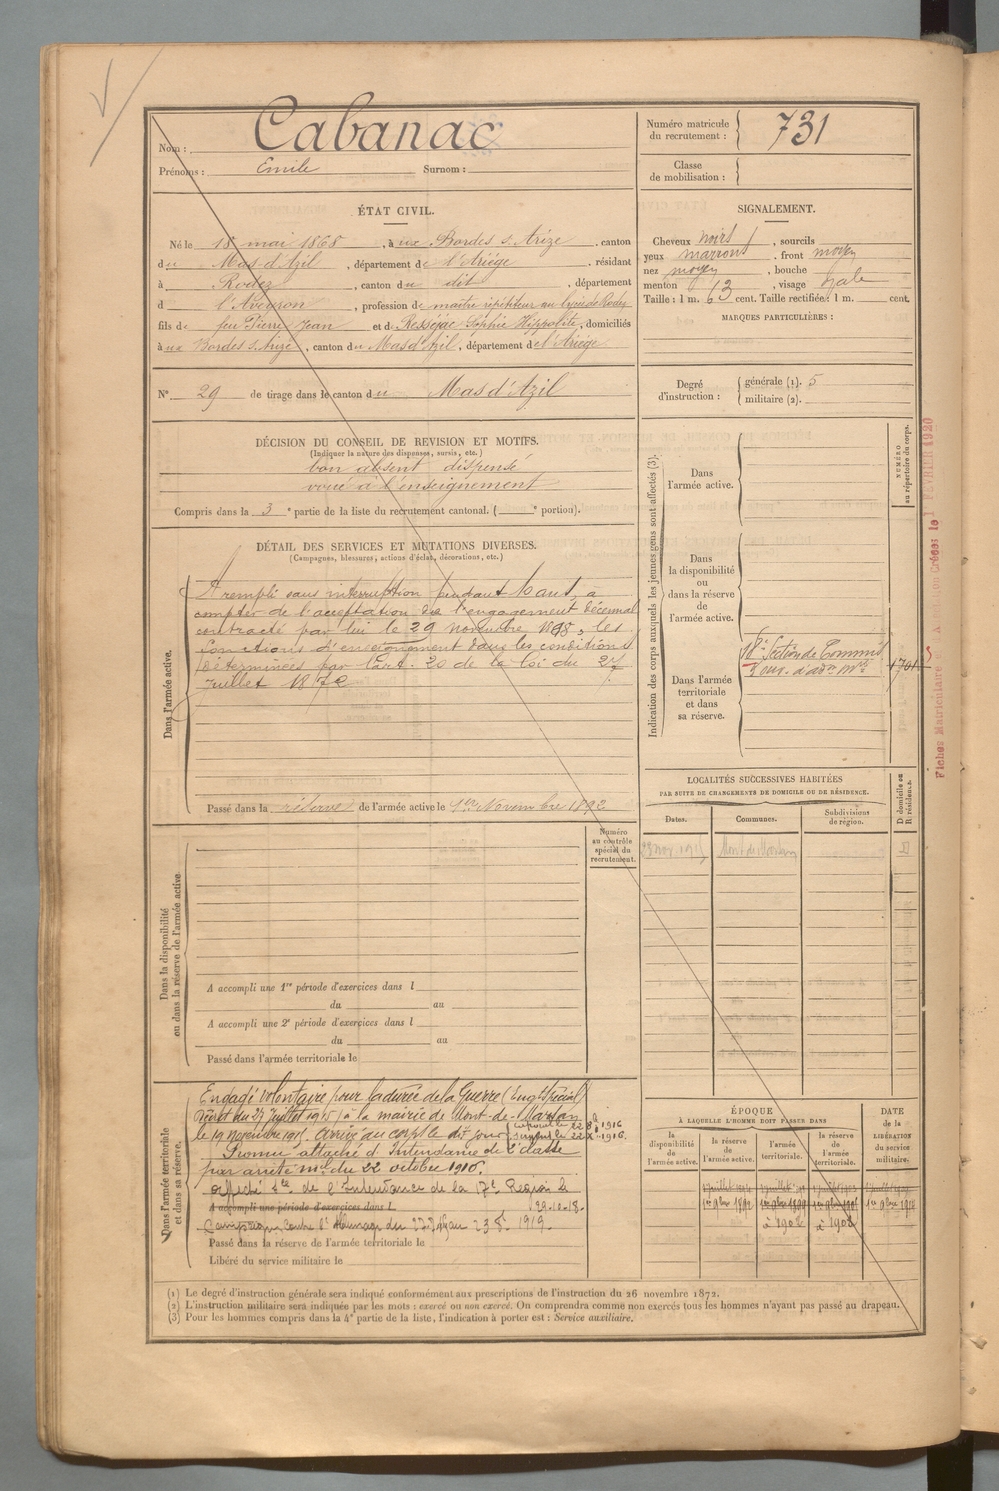 Nom : Cabanac
Prénoms : Emile Surnom :
Numéro matricule du recrutement : 731
Classe de mobilisation :
ÉTAT CIVIL.
Né le 18 mai 1868, à ux Bordes s. Arize, canton
du Mas-d'Azil, département de l'Ariége, résidant
à Rodez, canton du dit, département
d l'Aveyron, profession de maître répétiteur au lycée de Rodez
fils de feu Pierre Jean et de Resséjac Sophie Hippolite, domiciliés
à ux Bordes s. Arize, canton du Mas d'Azil, département de l'Ariége.
SIGNALEMENT.
Cheveux noirs, sourcils
yeux marrons, front moyen
nez moyen, bouche
menton, visage ovale
Taille : 1 m. 63 cent. Taille rectifiée : 1 m. cent.
MARQUES PARTICULIÈRES :
N° 29 de tirage dans le canton du Mas d'Azil
Degré d'instruction : générale (1). 5
militaire (2).
DÉCISION DU CONSEIL DE REVISION ET MOTIFS.
(Indiquer la nature des dispenses, sursis, etc.)
bon absent dispensé
voué à l'enseignement
Compris dans la 3e partie de la liste du recrutement cantonal. ( e portion).
DÉTAIL DES SERVICES ET MUTATIONS DIVERSES.
(Campagnes, blessures, actions d'éclat, décorations, etc.)
Dans l'armée active.
A rempli sans interruption pendant 10 ans, à
compter de l'acceptation de l'engagement décennal
contracté par lui le 29 novembre, les
fonctions d'enseignement dans les conditions
déterminées par l'art. 20 de la loi du 27
juillet 1872
Passé dans la réserve de l'armée active le 1er Novembre 1892
Numéro au contrôle spécial du recrutement.
Dans la disponibilité ou dans la réserve de l'armée active
A accompli une 1re période d'exercices dans l
du au
A accompli une 2e période d'exercices dans l
du au
Passé dans l'armée territoriale le
Dans l'armée territoriale et dans sa réserve.
Engagé volontaire pour la durée de la Guerre (Engt Spécial
Décret du 27 Juillet 1915) à la mairie de Mont-de-Marsan
le 19 novembre 1915. Arrivé au corps le dit jour
Promu attaché d'Intendance de 2e classe
par arrêté mel du 22 octobre 1916.
affecté de l'Intendance de la 17e Région le
A accompli une période d'exercices dans l 29.10.18.
Campagne contre l'Allemagne du au 1919.
Passé dans la réserve de l'armée territoriale le
Libéré du service militaire le
Indication des corps auxquels les jeunes gens sont affectés (3).
NUMÉRO au répertoire du corps.
Dans l'armée active.
Dans la disponibilité ou dans la réserve de l'armée active.
Dans l'armée territoriale et dans sa réserve.
18e Section de Commis
d'adon Mre
Fiches Matriculaires Créées le 1 FEVRIER 1920
LOCALITÉS SUCCESSIVES HABITÉES
PAR SUITE DE CHANGEMENTS DE DOMICILE OU DE RÉSIDENCE.
Dates. Communes. Subdivisions de région. D domicile ou R résidence.
23 nov. 1915 Mont de Marsan D
ÉPOQUE
À LAQUELLE L'HOMME DOIT PASSER DANS
DATE de la LIBÉRATION du service militaire.
la disponibilité de l'armée active. la réserve de l'armée active. l'armée territoriale. la réserve de l'armée territoriale.
1er 9bre 1892 1er 9bre 1899 1er 9bre
à 1902 à 1908
(1) Le degré d'instruction générale sera indiqué conformément aux prescriptions de l'instruction du 26 novembre 1872.
(2) L'instruction militaire sera indiquée par les mots : exercé ou non exercé. On comprendra comme non exercés tous les hommes n'ayant pas passé au drapeau.
(3) Pour les hommes compris dans la 4e partie de la liste, l'indication à porter est : Service auxiliaire.